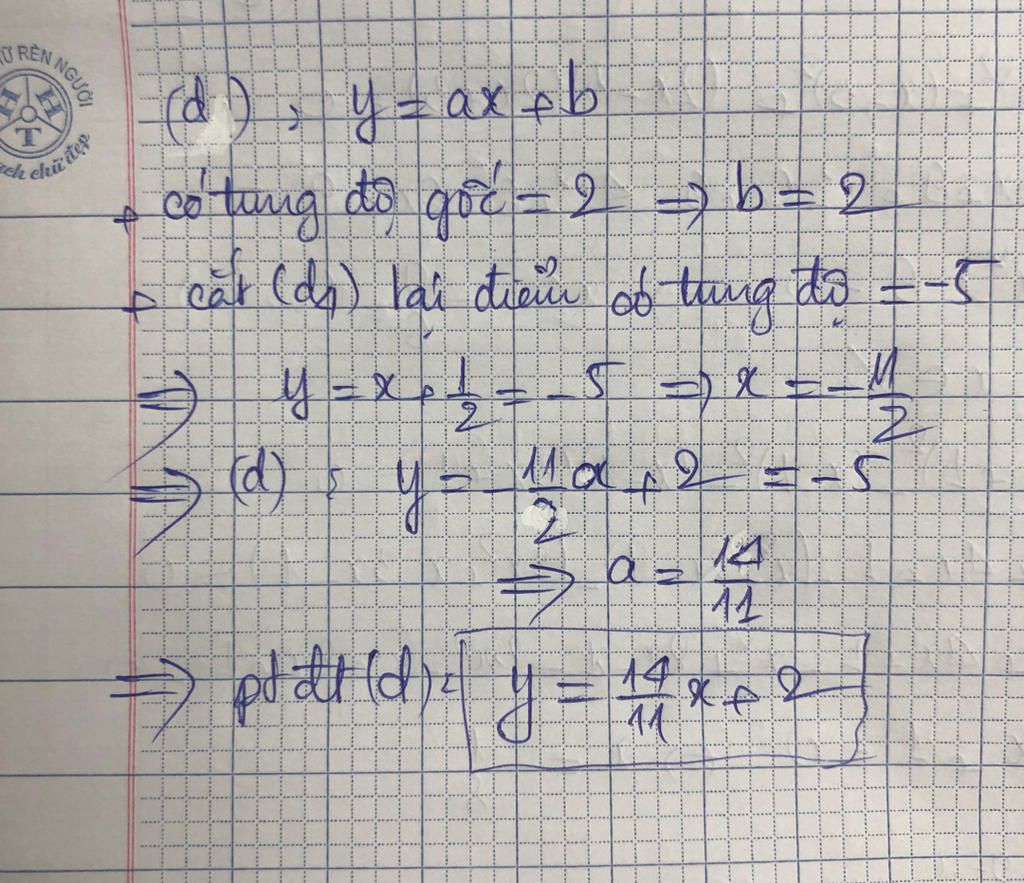 Ữ RÈN NGƯỜI
H H T
ạch chữ đẹp
(d) : y = ax + b
+ có tung độ gốc = 2 => b = 2
+ cắt (d1) tại điểm có tung độ = -5
=> y = x + 1/2 = -5 => x = -11/2
=> (d) : y = -11/2 a + 2 = -5
=> a = 14/11
=> pt đt (d): y = 14/11 x + 2